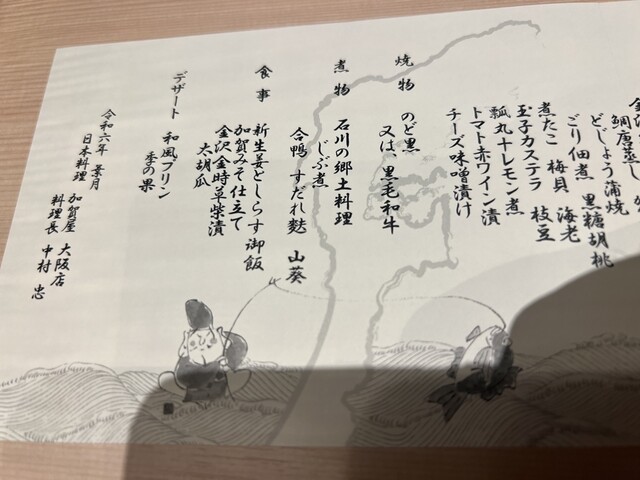 鯛唐蒸し
どじょう蒲焼
ごり佃煮　黒糖胡桃
煮たこ　梅貝　海老
玉子カステラ　枝豆
瓢　丸十レモン煮
トマト赤ワイン漬
チーズ味噌漬け
焼物　のど黒
又は、黒毛和牛
煮物　石川の郷土料理
じぶ煮
合鴨　すだれ麸　山葵
食事　新生姜としらす御飯
加賀みそ仕立て
金沢金時草柴漬
大胡瓜
デザート　和風プリン
季の果
令和六年　葉月
日本料理　加賀屋　大阪店
料理長　中村　忠